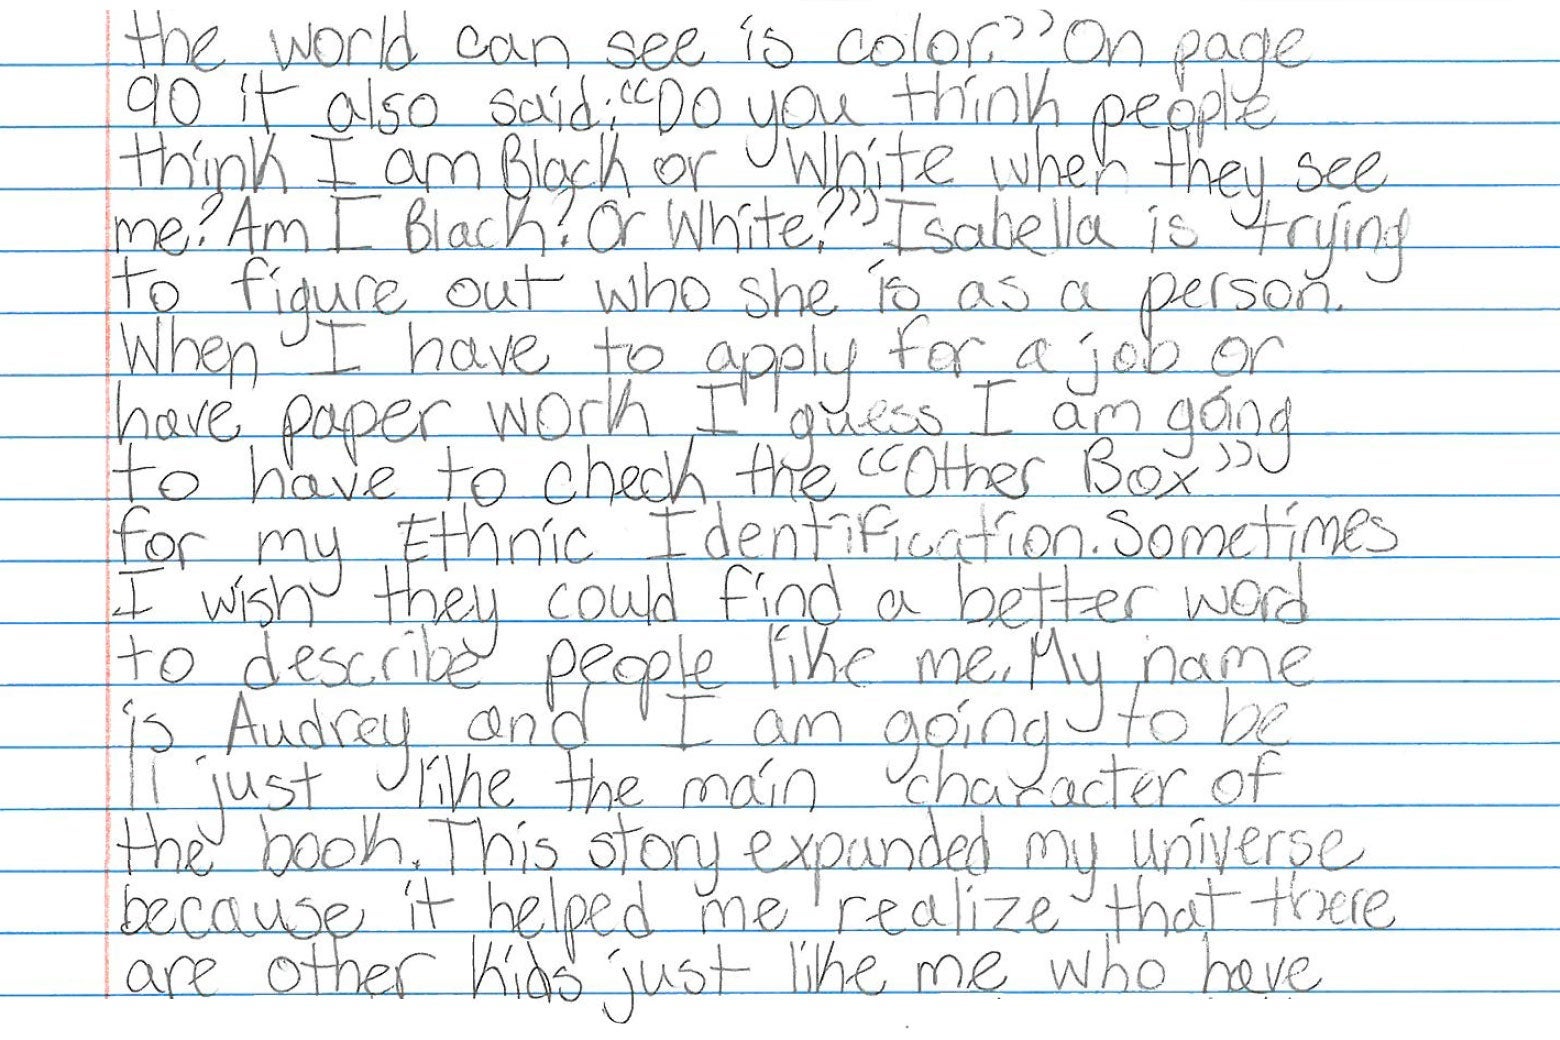 the world can see is color." On page
90 it also said: "Do you think people
think I am Black or White when they see
me? Am I Black? Or White?" Isabella is trying
to figure out who she is as a person.
When I have to apply for a job or
have paper work I guess I am going
to have to check the "Other Box"
for my Ethnic Identification. Sometimes
I wish they could find a better word
to describe people like me. My name
is Audrey and I am going to be
11 just like the main character of
the book. This story expanded my universe
because it helped me realize that there
are other kids just like me who have